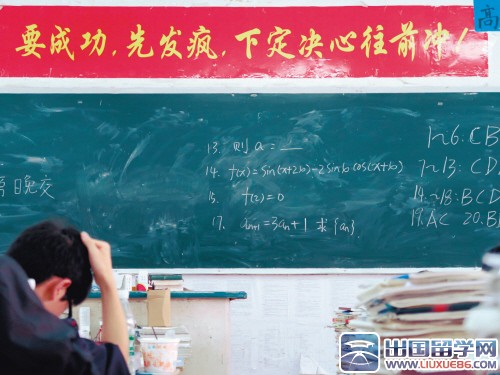 要成功，先发疯，下定决心往前冲！
高
日晚交
13. 则 a = __
14. f(x)=sin(x+2φ)-2sinφcos(x+φ)
15. f(2)=0
17. bn=3an+1 求{an}
12. CD
14~18: BCD
19. AC 20. B
出国留学网
WWW.LIUXUE86.COM